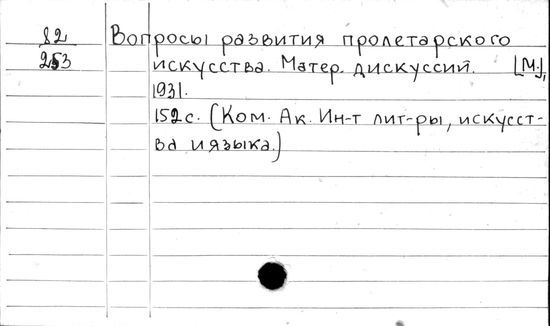 82 Вопросы развития пролетарского
253 искусства. Матер. дискуссий. [М.],
1931.
152 с. (Ком. Ак. Ин-т лит-ры, искусст-
ва и языка.)